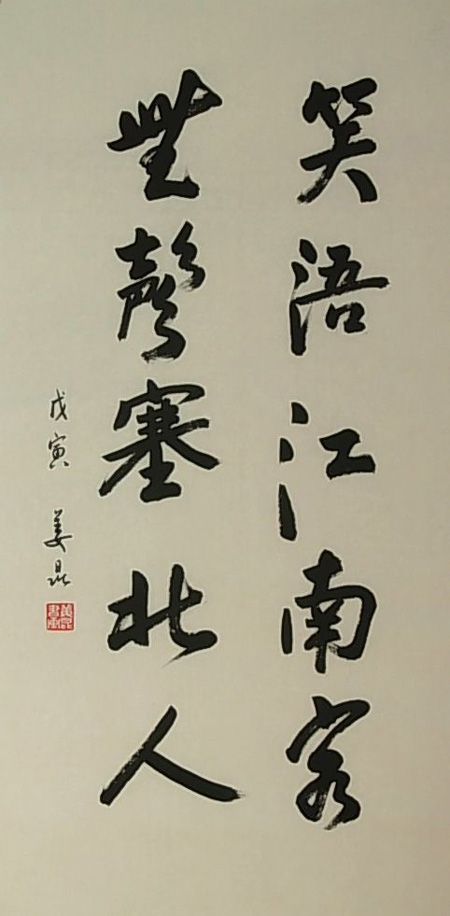 笑语江南客
無聲塞北人
戊寅 姜昆